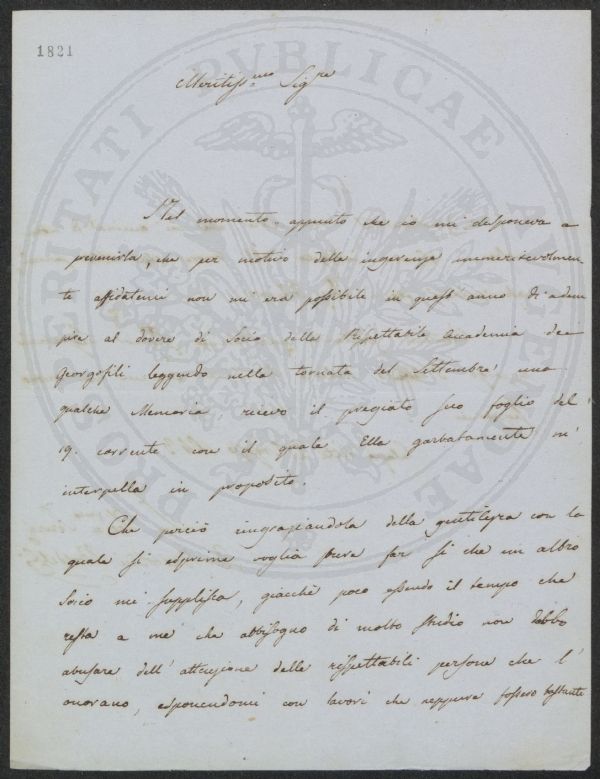 1821
PROSPERITATI PUBLICAE AUGENDAE
Meritiss.mo Sig.re
Nel momento appunto che io mi disponeva a
prevenirla, che per motivo delle ingerenze immeritevolmen
te affidatemi non mi era possibile in quest' anno di adem
pire al dovere di Socio della Rispettabile Accademia dei
Georgofili leggendo nella tornata del Settembre una
qualche Memoria, ricevo il pregiato suo foglio del
19. corrente con il quale Ella garbatamente m'
interpella in proposito.
Che perciò ringraziandola della gentilezza con la
quale si esprime voglia pure far sì che un altro
Socio mi supplisca, giacchè poco essendo il tempo che
resta a me che abbisogno di molto studio non debbo
abusare dell' attenzione delle rispettabili persone che l'
onorano, esponendomi con lavori che neppure fossero bastante